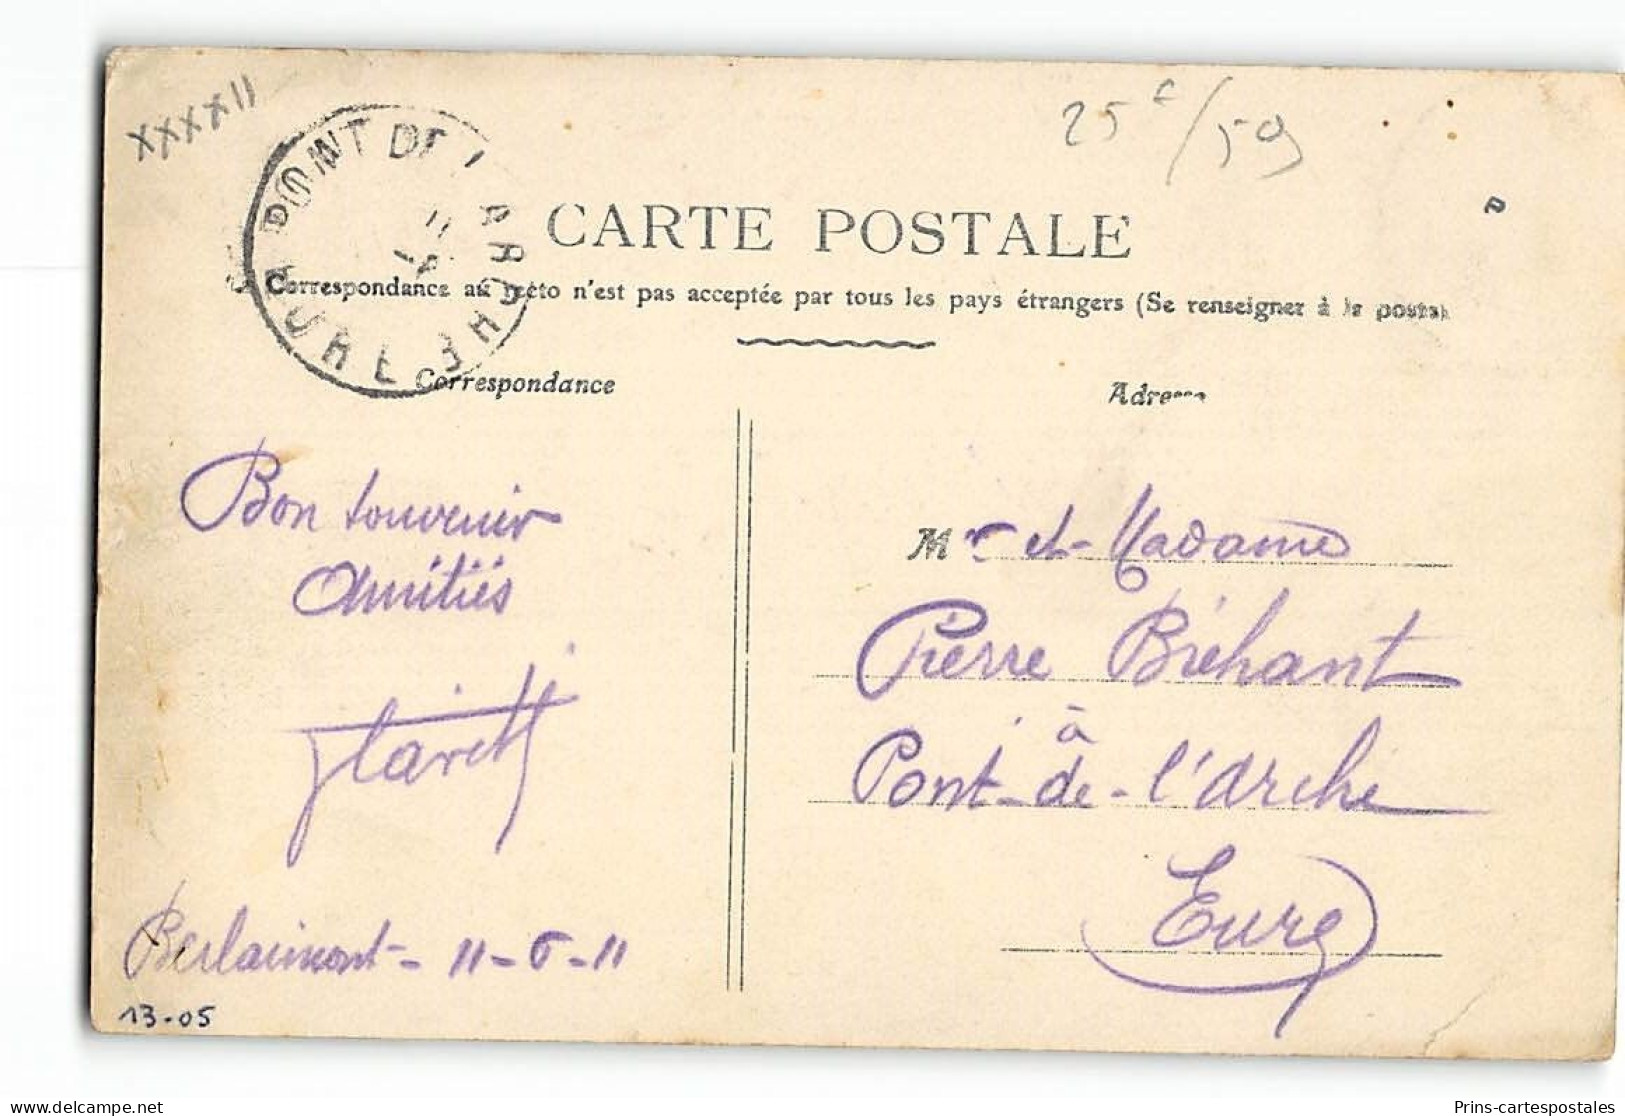 XXXXII
25 F/59
PONT DE L'ARCHE
EURE
CARTE POSTALE
Correspondance au recto n'est pas acceptée par tous les pays étrangers (Se renseigner à la poste)
Correspondance
Adresse
Bon souvenir
Amitiés
Berlaimont - 11-6-11
13-05
Mr et Madame
Pierre Bréhant
à
Pont-de-l'Arche
Eure
delcampe.net
Prins-cartespostales